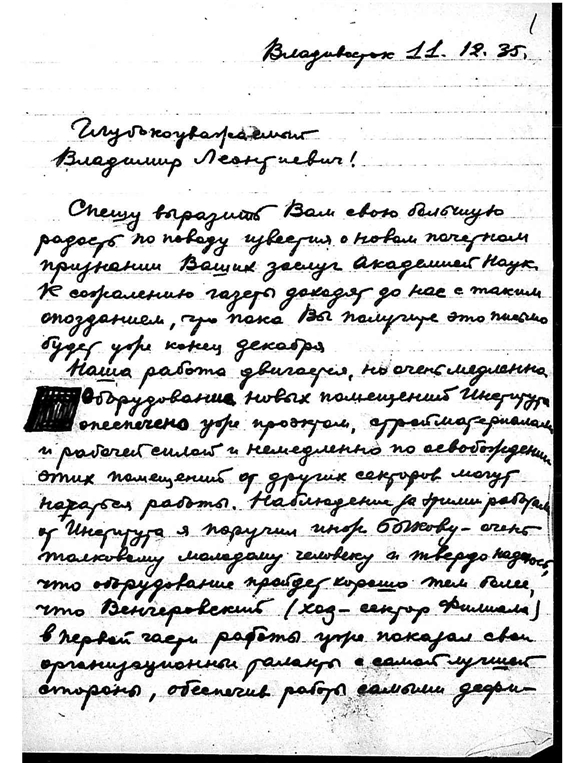 1
Владивосток 11. 12. 35.
Глубокоуважаемый
Владимир Леонтиевич!
Спешу выразить Вам свою большую
радость по поводу известия о новом почетном
признании Ваших заслуг Академией Наук.
К сожалению газеты доходят до нас с таким
опозданием, что пока Вы получите это письмо
будет уже конец декабря
Наша работа двигается, но очень медленно
Оборудование новых помещений Института
обеспечено уже проэктом, стройматериалами
и рабочей силой и немедленно по освобождении
этих помещений от других секторов могут
начаться работы. Наблюдение за этими работами
от Института я поручил инж Быкову – очень
толковому молодому человеку и твердо надеюсь,
что оборудование пройдет хорошо тем более,
что Венчеровский (хоз – сектор Филиала)
в первой части работы уже показал свои
организационные таланты с самой лучшей
стороны, обеспечив работы самыми дефи-